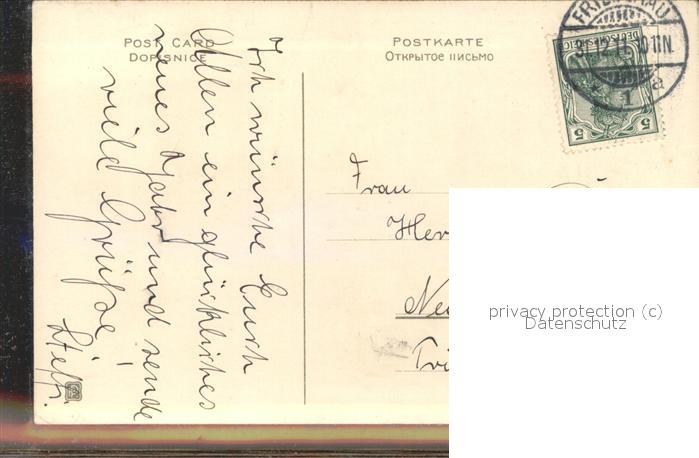 POST CARD
DOPISNICE
POSTKARTE
Открытое письмо
FRIEDENAU
31.12.11. 10-11N.
* 1 a
DEUTSCHES REICH
5 5
Ich wünsche Euch
Allen ein glückliches
neues Jahr und sende
viele Grüße
Steffi.
Frau
Her
Ne
Tri
privacy protection (c)
Datenschutz